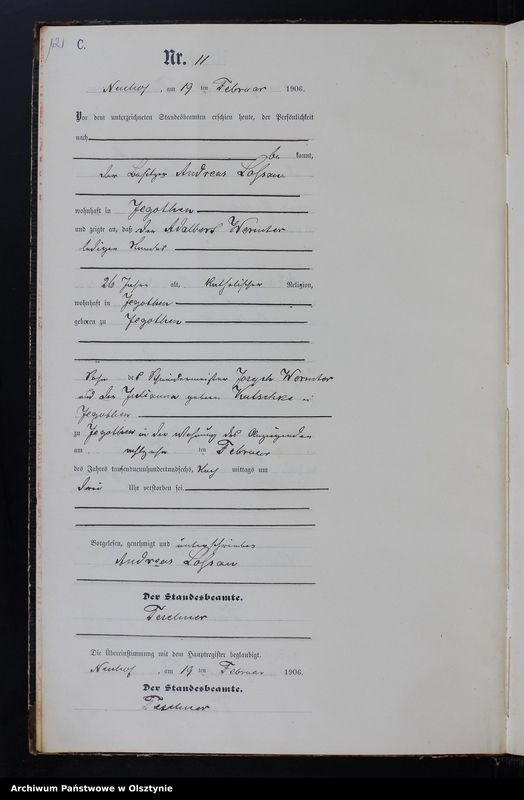 C.
Nr. 11
Neuhof, am 19 ten Februar 1906.
Vor dem unterzeichneten Standesbeamten erschien heute, der Persönlichkeit
nach
be kannt,
der Besitzer Andreas Lossau
wohnhaft in Jegothen
und zeigte an, daß der Adalbert Wermter
ledigen Standes
26 Jahre alt, katholischer Religion,
wohnhaft in Jegothen
geboren zu Jegothen
Sohn des Schneidermeister Joseph Wermter
und der Julianna geboren Kutschke in
Jegothen
zu Jegothen in der Wohnung des Anzeigenden
am ten Februar
des Jahres tausendneunhundertundsechs, Nach mittags um
drei Uhr verstorben sei.
Vorgelesen, genehmigt und unterschrieben
Andreas Lossau
Der Standesbeamte.
Teschner
Die Übereinstimmung mit dem Hauptregister beglaubigt.
Neuhof, am 19 ten Februar 1906.
Der Standesbeamte.
Teschner
Archiwum Państwowe w Olsztynie